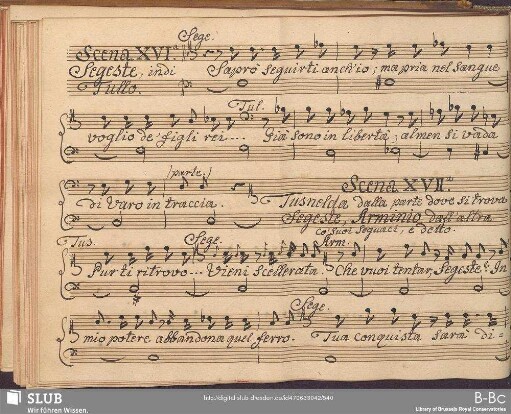 Sege.
Scena XVI.ª
Segeste, indi Saprò seguirti anch'io; ma pria nel sangue
Tullo.
Tul.
voglio de' figli rei... Già sono in libertà; almen si vada
/parte./
di Varo in traccia.
Scena XVII.ª
Tusnelda dalla parte dove si trova
Segeste, Arminio dall'altra
co' suoi seguaci, e detto.
Tus. Sege. Arm.
Pur ti ritrovo... Vieni scellerata. Che vuoi tentar, Segeste? In
Sege.
mio potere abbandona quel ferro. Tua conquista sarà di=
SLUB
Wir führen Wissen.
B-Bc
Library of Brussels Royal Conservatories